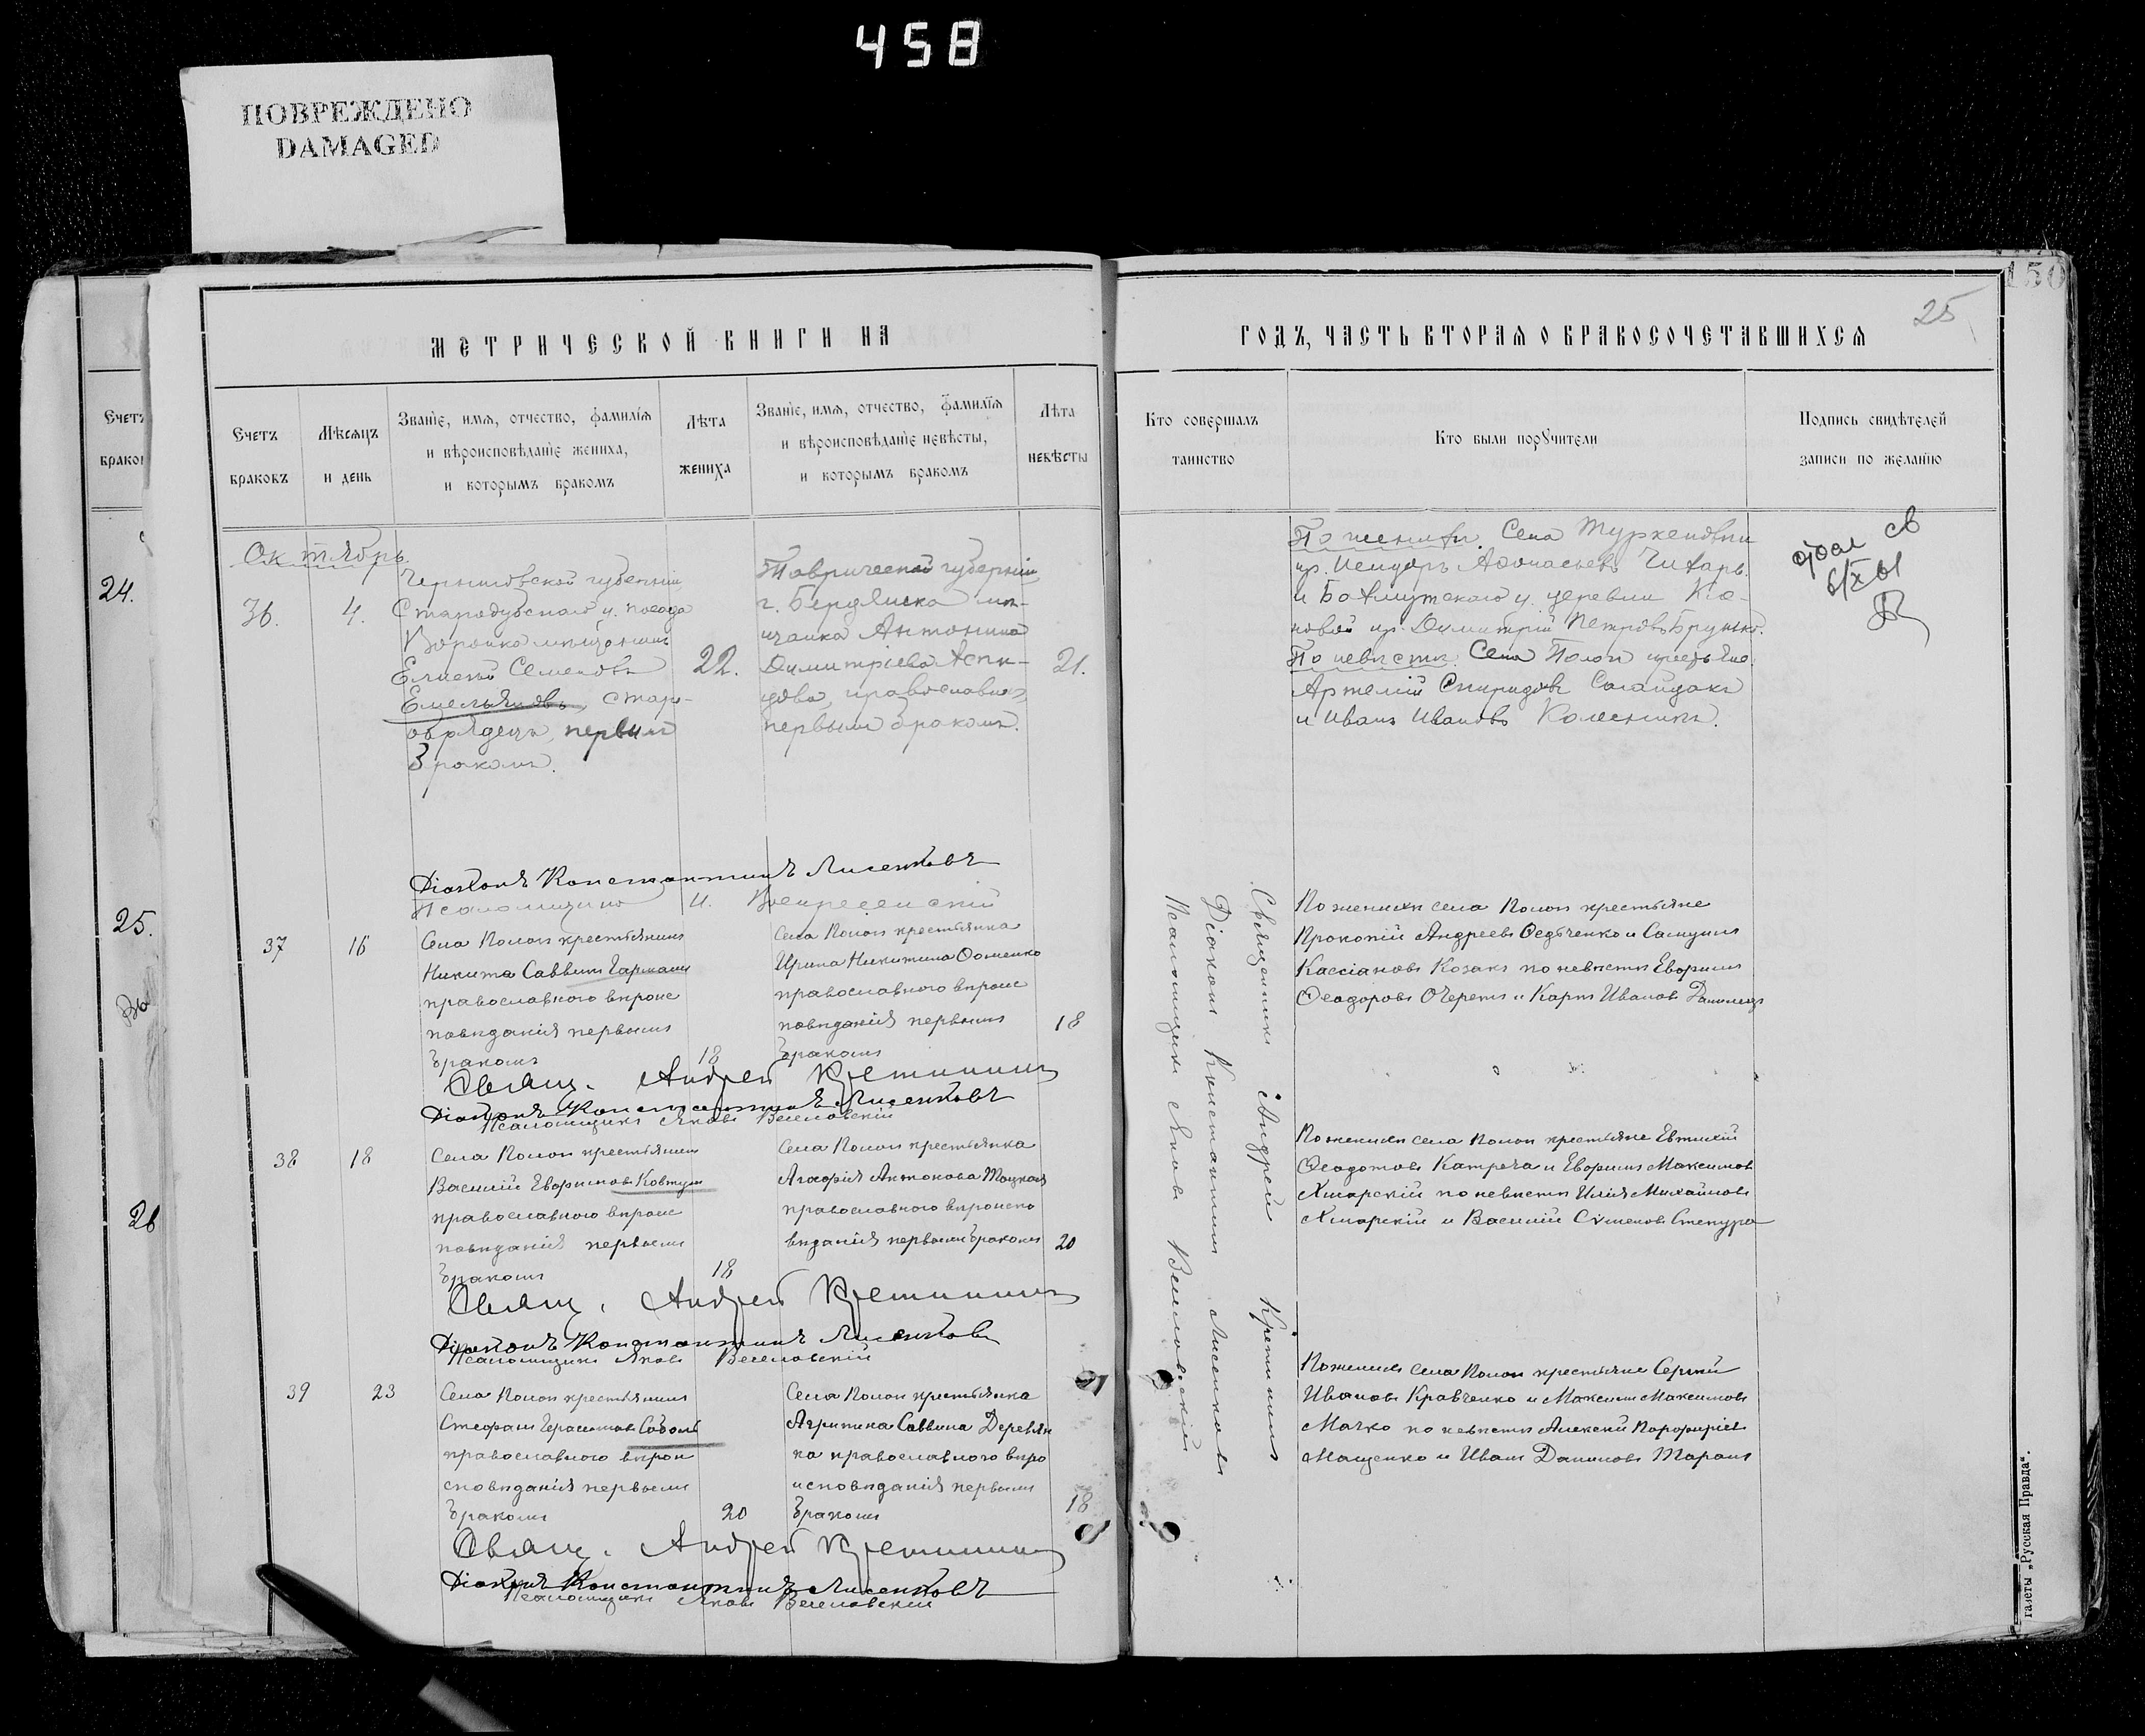 458
ПОВРЕЖДЕНО
DAMAGED
Счетъ
24.
25.
26
МЕТРИЧЕСКОЙ КНИГИ НА
Счетъ
браковъ
Мѣсяцъ
и день
Званіе, имя, отчество, фамилія
и вѣроисповѣданіе жениха,
и которымъ бракомъ
Лѣта
жениха
Званіе, имя, отчество, фамилія
и вѣроисповѣданіе невѣсты,
и которымъ бракомъ
Лѣта
невѣсты
Октябрь.
36.
4.
Черниговской губерніи
Стародубскаго у. посада
Воронка мѣщанинъ
Елисей Семеновъ
Емельяновъ, старо-
обрядецъ, первым
бракомъ.
22.
Таврической губерніи
г. Бердянска мѣ-
щанка Антонина
Димитріева
православн.,
первымъ бракомъ.
21.
Діаконъ Константинъ Лисенковъ
Псаломщикъ И. Воскресенскій
37
16
Села Полог крестьянинъ
Никита Саввинъ Гармашъ
православного вѣроис
повѣданія первымъ
бракомъ
18
Села Полог крестьянка
Ирина Никитина Фоменко
православного вѣроис
повѣданія первымъ
бракомъ
18
Свящ. Андрей Кретининъ
Діаконъ Константинъ Лисенковъ
Псаломщикъ Яковъ Веселовскій
38
18
Села Полог крестьянинъ
Василій Евфимовъ Ковтун
православного вѣроис
повѣданія первымъ
бракомъ
18
Села Полог крестьянка
Агафія Антонова Тоцкая
православного вѣроиспо
вѣданія первымъ бракомъ
20
Свящ. Андрей Кретининъ
Діаконъ Константинъ Лисенковъ
Псаломщикъ Яковъ Веселовскій
39
23
Села Полог крестьянинъ
Стефанъ Герасимовъ Соболь
православного вѣрои
сповѣданія первымъ
бракомъ
20
Села Полог крестьянка
Агрипина Саввина Деревян
ка православного вѣро
исповѣданія первымъ
бракомъ
18
Свящ. Андрей Кретининъ
Діаконъ Константинъ Лисенковъ
Псаломщикъ Яковъ Веселовскій
150
25
ГОДЪ, ЧАСТЬ ВТОРАЯ О БРАКОСОЧЕТАВШИХСЯ
Кто совершалъ
таинство
Кто были поручители
Подпись свидѣтелей
записи по желанію
Священникъ Андрей Кретининъ
Діаконъ Константинъ Лисенковъ
Псаломщикъ Яковъ Веселовскій
По женихѣ: Села Туркеновки
кр. Исидоръ Афанасьевъ Чихарь
и Бахмутскаго у. деревни Кле-
новой кр. Димитрій Петровъ Брунько.
По невѣстѣ: Села Полог крестьяне
Артемій Спиридовъ Сагайдакъ
и Иванъ Ивановъ Колесникъ.
По женихѣ села Полог крестьяне
Прокопій Андреевъ Федченко и Самуилъ
Кассіановъ Козакъ по невѣстѣ Евфимъ
Феодоровъ Очеретъ и Карпъ Ивановъ Данилецъ
По женихѣ села Полог крестьяне Евтихій
Феодотовъ Катреча и Евфимъ Максимовъ
Хмарскій по невѣстѣ Илія Михайловъ
Хмарскій и Василій Симеоновъ Стецура
По женихѣ села Полог крестьяне Сергій
Ивановъ Кравченко и Максимъ Максимовъ
Мачко по невѣстѣ Алексій Порфиріевъ
Мащенко и Иванъ Даниловъ Таранъ
газеты „Русская Правда“.